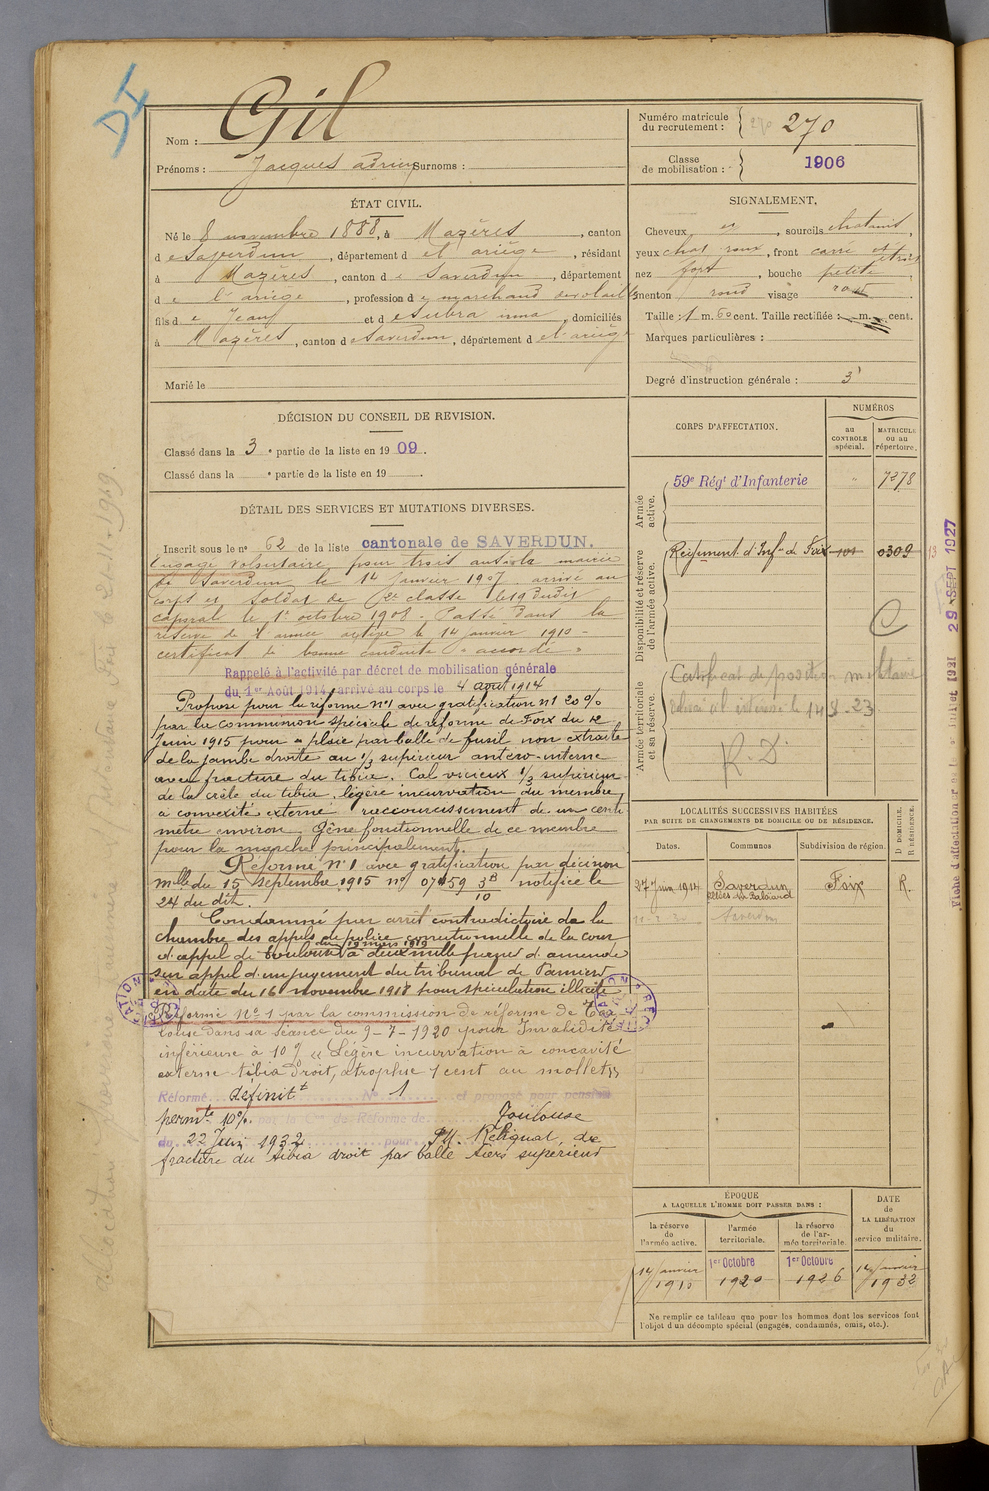 DI
Gil
Nom :
Prénoms : Jacques Surnoms :
ÉTAT CIVIL.
Né le 8 novembre 1888, à Mazères, canton
de Saverdun, département de l'ariège, résidant
à Mazères, canton de Saverdun, département
de l'ariège, profession de marchand
fils de Jean et de Subra, domiciliés
à Mazères, canton de Saverdun, département de l'ariège
Marié le
DÉCISION DU CONSEIL DE REVISION.
Classé dans la 3e partie de la liste en 1909.
Classé dans la e partie de la liste en 19
DÉTAIL DES SERVICES ET MUTATIONS DIVERSES.
Inscrit sous le n° 62 de la liste cantonale de SAVERDUN.
Engagé volontaire pour trois ans à la mairie
de Saverdun le 14 janvier 1907, arrivé au
corps et soldat de 2e classe le dit
caporal le 1er octobre 1908 - Passé dans la
réserve de l'armée active le 14 janvier 1910 -
certificat de bonne conduite "accordé"
Rappelé à l'activité par décret de mobilisation générale
du 1er Août 1914, arrivé au corps le 4 août 1914
Proposé pour la réforme n°1 avec gratification n°1 20 %
par la commission spéciale de réforme de Foix du 12
Juin 1915 pour "plaie par balle de fusil non extraite
de la jambe droite au 1/3 supérieur antéro-interne
avec fracture du tibia. Cal vicieux 1/3 supérieur
de la crête du tibia, légère incurvation du membre,
à convexité externe raccourcissement de un centi
mètre environ. Gêne fonctionnelle de ce membre
pour la marche principalement.
Réformé n°1 avec gratification par décision
Mlle du 15 septembre 1915 n° 07459 3B/10 notifiée le
24 du dit.
Condamné par arrêt contradictoire de la
chambre des appels de police correctionnelle de la cour
d'appel de Toulouse du 19 mars 1919 à deux mille francs d'amende
sur appel d'un jugement du tribunal de Pamiers
en date du 16 novembre 1918 pour spéculation illicite
Réformé N° 1 par la commission de réforme de Tou
louse dans sa séance du 9-7-1920 pour Invalidité
inférieure à 10 % "Légère incurvation à concavité
externe tibia droit, atrophie 1 cent au mollet"
Réformé définitt N° 1 et proposé pour pension
permte 10% de Réforme de Toulouse
du 22 Juin 1932 pour de
fracture du tibia droit par balle tiers supérieur
Numéro matricule
du recrutement : 270
Classe
de mobilisation : 1906
SIGNALEMENT.
Cheveux et, sourcils chatains,
yeux chat roux, front carré et étroit
nez fort, bouche petite
menton rond visage rond
Taille : 1 m. 60 cent. Taille rectifiée : m. cent.
Marques particulières :
Degré d'instruction générale : 3
CORPS D'AFFECTATION.
NUMÉROS
au CONTROLE spécial.
MATRICULE ou au répertoire.
Armée active.
59e Régt d'Infanterie " 7278
Disponibilité et réserve de l'armée active.
Régiment d'Infie de Foix 0309
C
Armée territoriale et sa réserve.
Certificat de position militaire
délivré à l'intéressé le
R. D.
LOCALITÉS SUCCESSIVES HABITÉES
PAR SUITE DE CHANGEMENTS DE DOMICILE OU DE RÉSIDENCE.
Dates. Communes Subdivision de région. D DOMICILE. R RÉSIDENCE.
27 Juin 1914 Saverdun Foix R.
Saverdun
ÉPOQUE
A LAQUELLE L'HOMME DOIT PASSER DANS :
la réserve de l'armée active.
l'armée territoriale.
la réserve de l'armée territoriale.
DATE de LA LIBÉRATION du service militaire.
14 janvier 1910
1er Octobre 1920
1er Octobre 1926
14 janvier 1932
Ne remplir ce tableau que pour les hommes dont les services font
l'objet d'un décompte spécial (engagés, condamnés, omis, etc.).
29 SEPT 1927